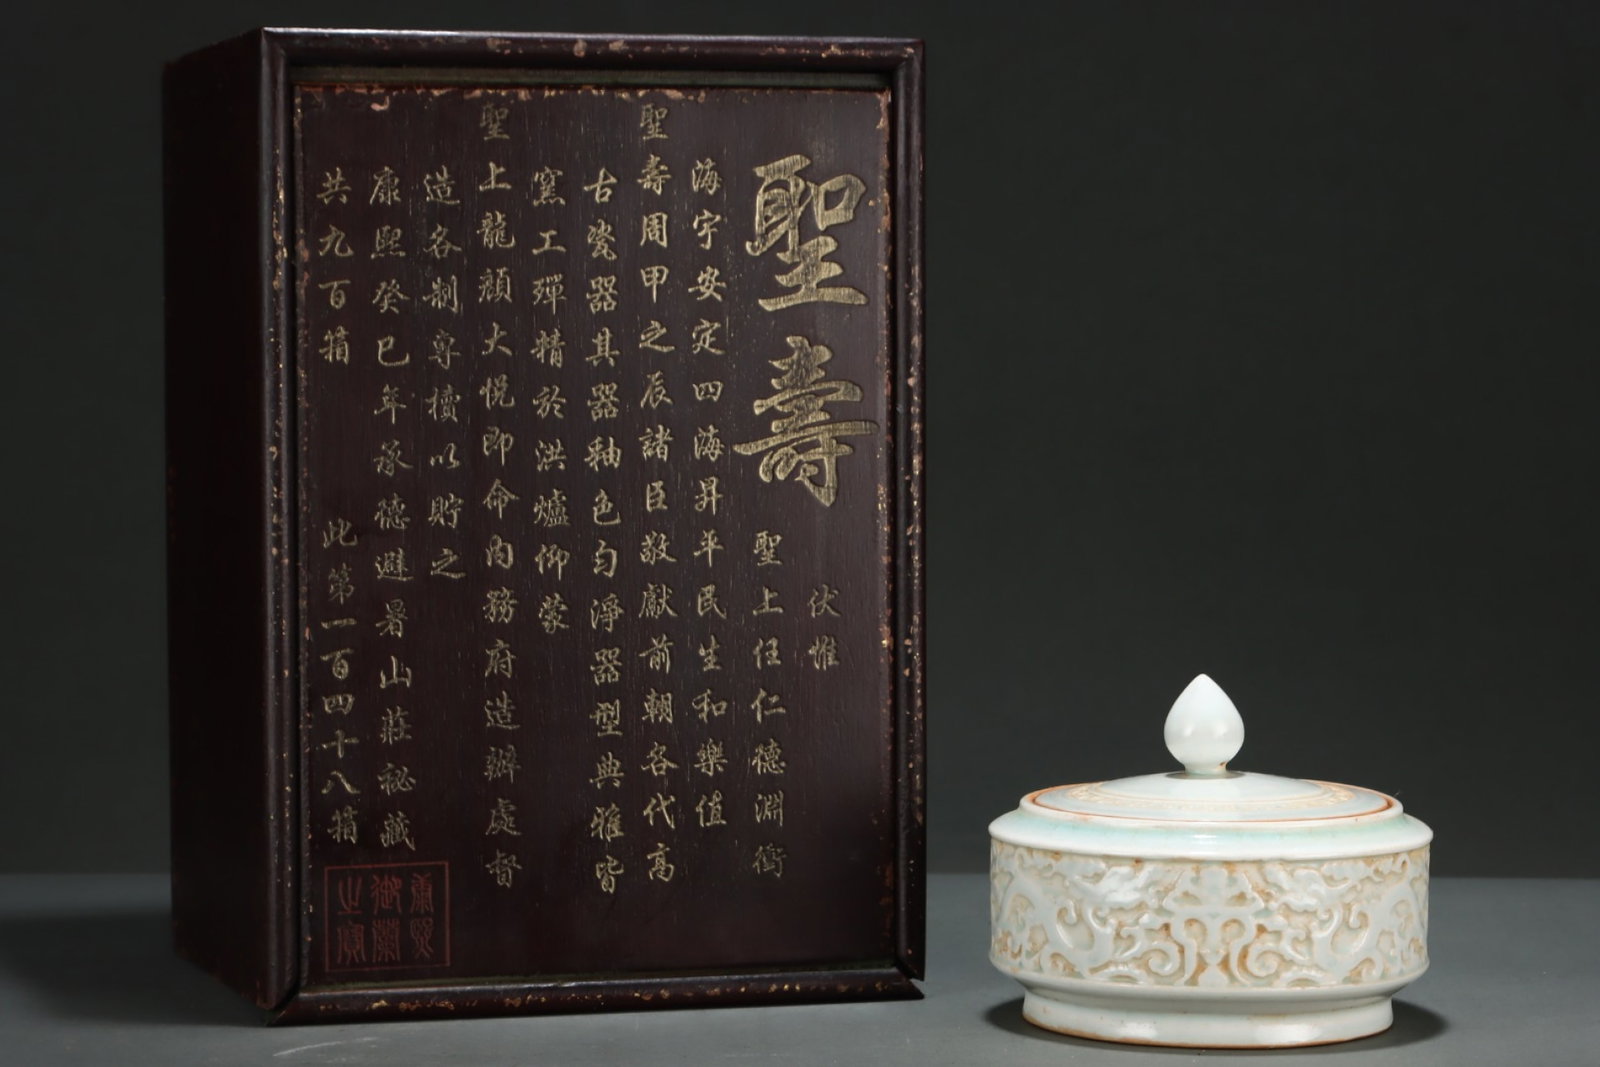 聖壽
伏惟
聖上任仁德淵衝
海宇安定四海昇平民生和樂值
聖壽周甲之辰諸臣敬獻前朝各代高
古瓷器其器釉色勻淨器型典雅皆
窯工殫精於洪爐仰蒙
聖上龍顏大悅即命內務府造辦處督
造各制專櫝以貯之
康熙癸巳年承德避暑山莊祕藏
共九百箱
此第一百四十八箱
康熙
御
之寶